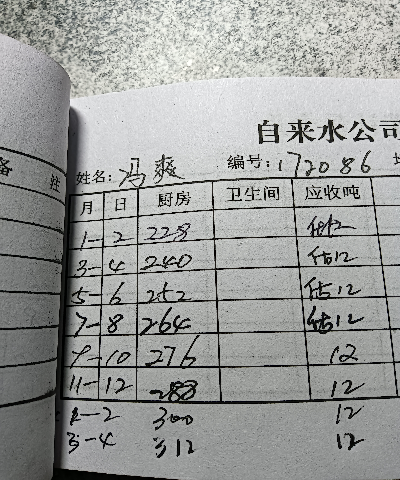 自来水公司
备 注
姓名: 冯爽 编号: 172086
月 日 厨房 卫生间 应收吨
1-2 228 估12
3-4 240 估12
5-6 252 估12
7-8 264 估12
9-10 276 12
11-12 288 12
1-2 300 12
3-4 312 12